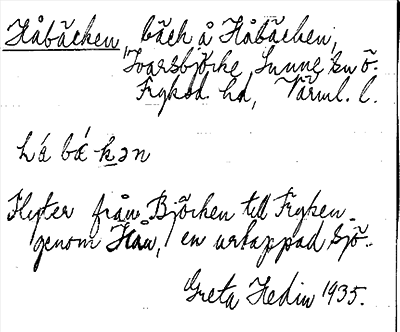 Håbäcken, bäck å Håbäcken,
Ivarsbjörke, Sunne sn ö.
Fryksd. hd, Värml. l.
hǻ bä́-kən
Flyter från Björken till Fryken
genom Hån, en urtappad sjö.
Greta Hedin 1935.